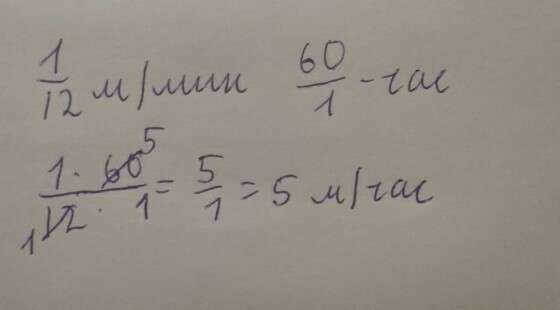 1/12 м/мин 60/1 - час
1 · 60 5 / 12 · 1 1 = 5/1 = 5 м/час